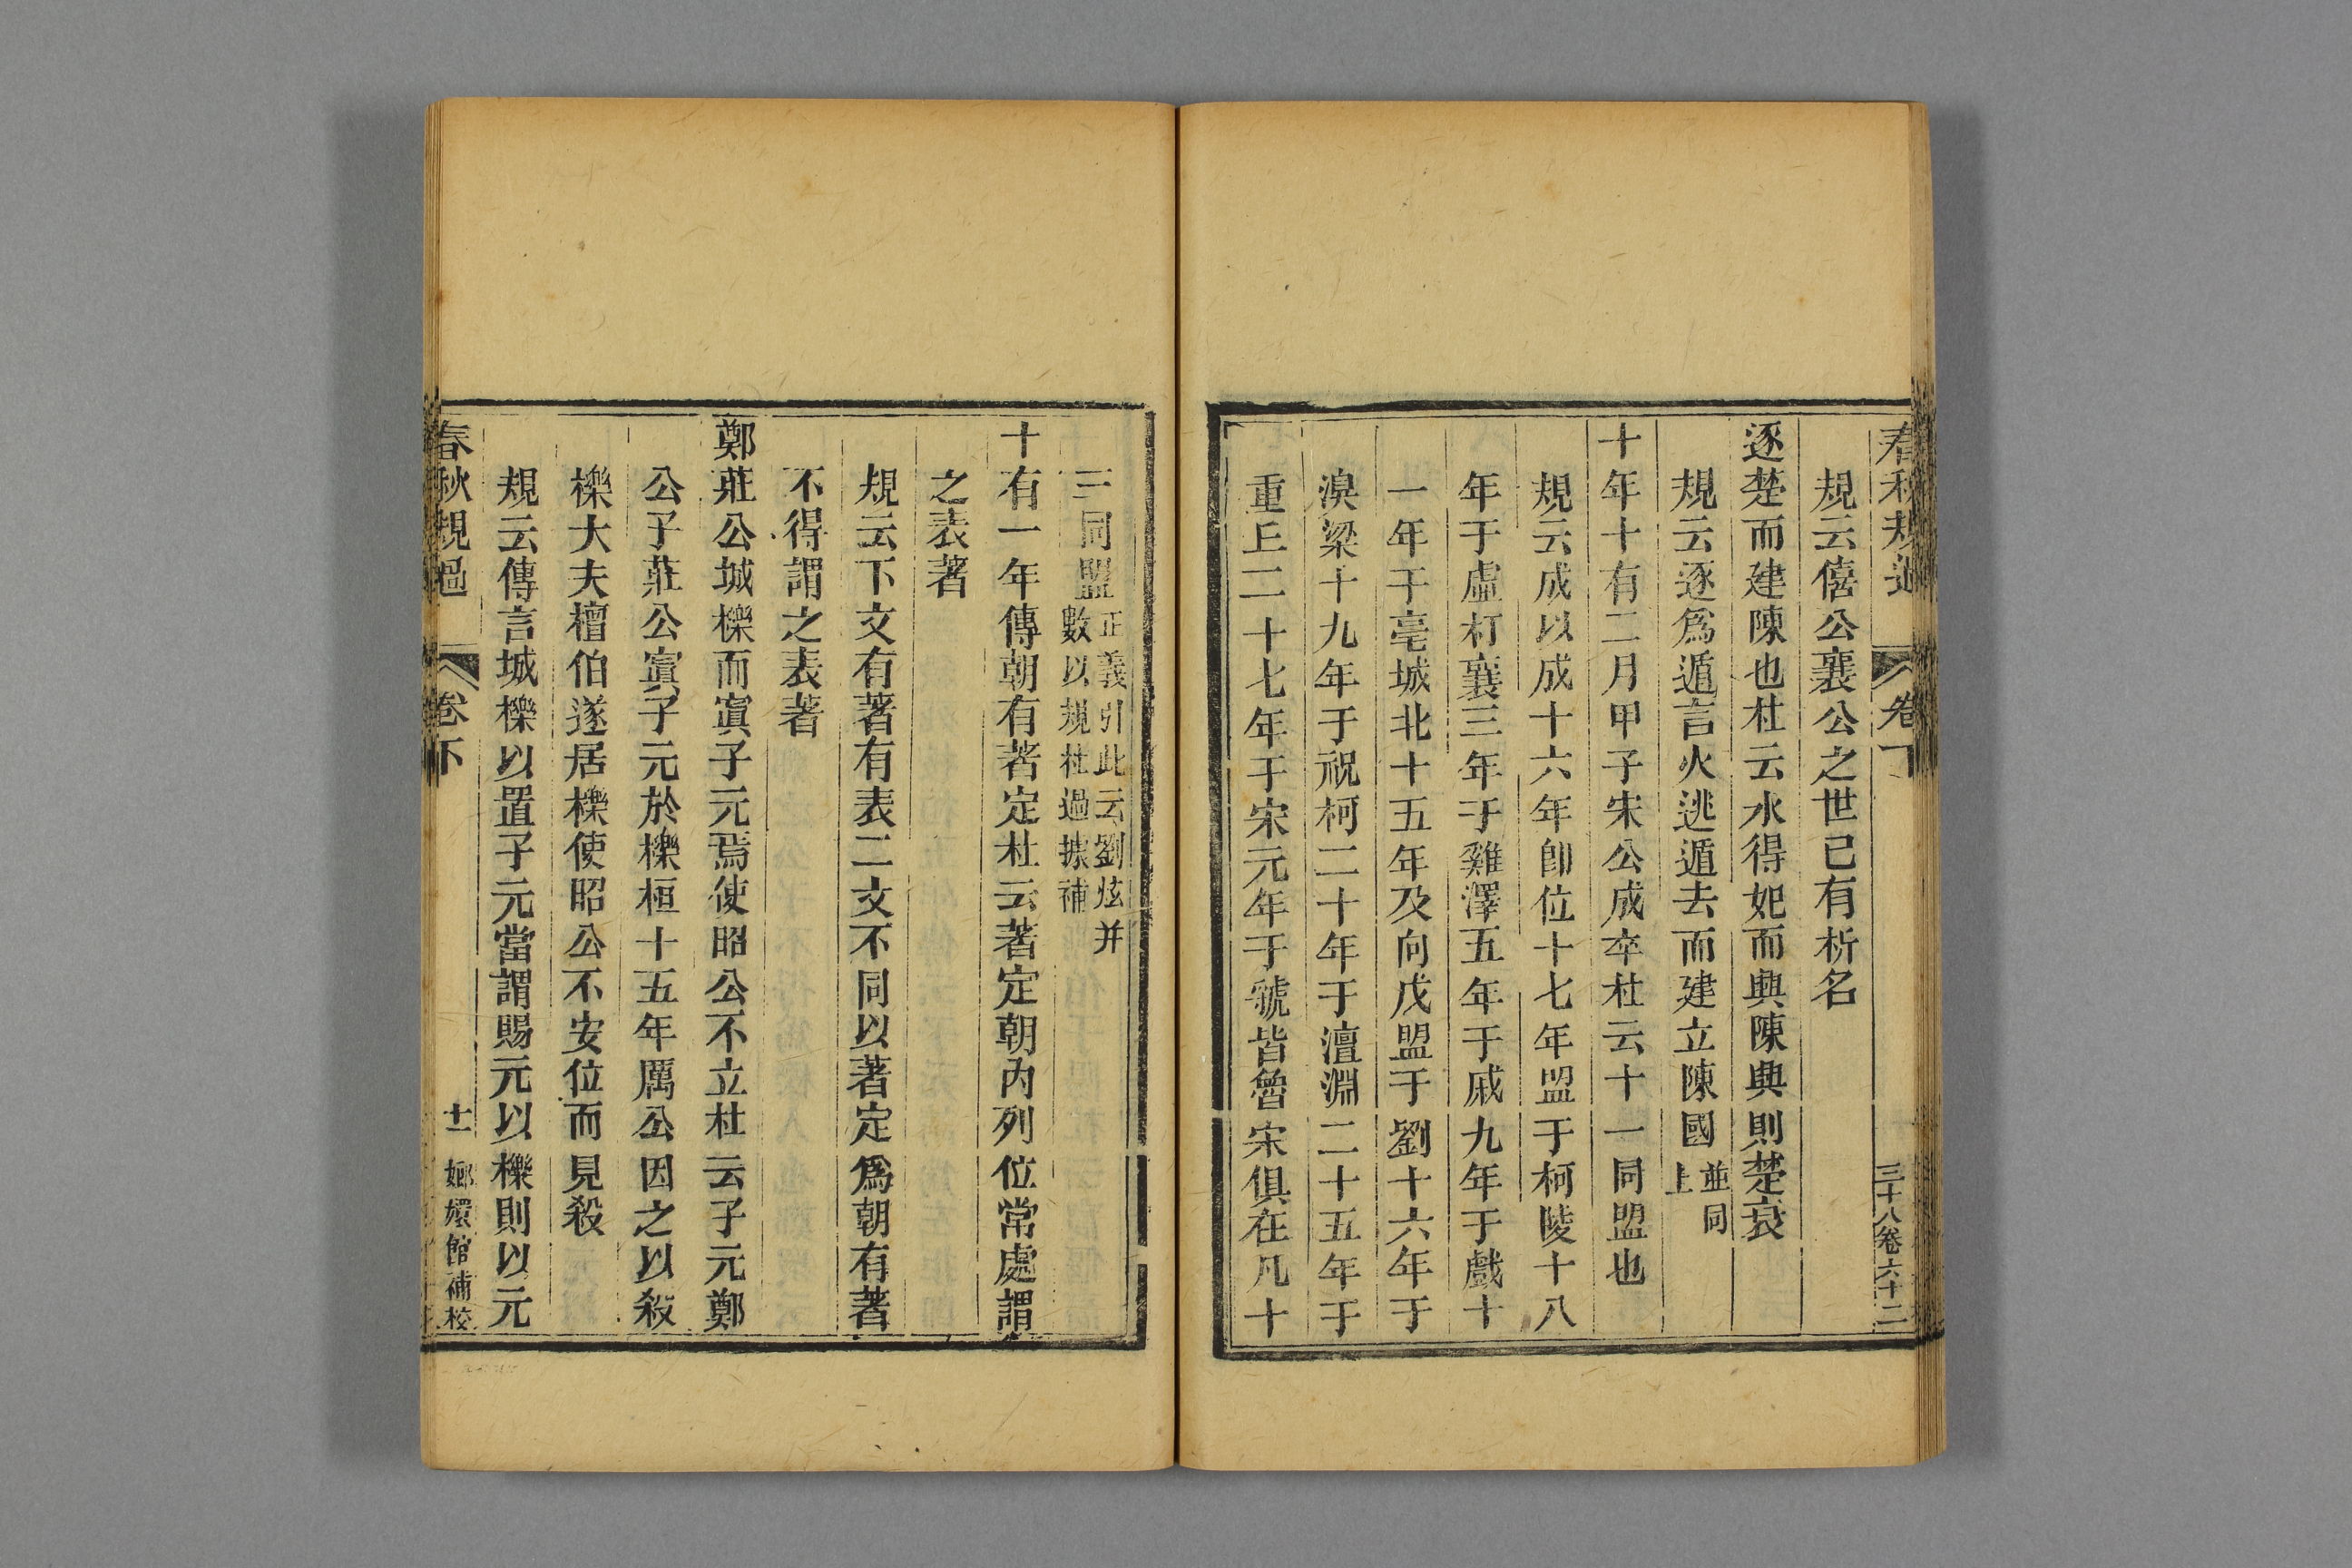 春秋規過 卷下 三十八卷六十二
規云僖公襄公之世已有析名
逐楚而建陳也杜云水得妃而興陳興則楚衰
規云逐爲遁言火逃遁去而建立陳國並同上
十年十有二月甲子宋公成卒杜云十一同盟也
規云成以成十六年卽位十七年盟于柯陵十八
年于虛朾襄三年于雞澤五年于戚九年于戲十
一年于亳城北十五年及向戌盟于劉十六年于
湨梁十九年于祝柯二十年于澶淵二十五年于
重丘二十七年于宋元年于虢皆魯宋俱在凡十
三同盟正義引此云劉炫并數以規杜過據補
十有一年傳朝有著定杜云著定朝內列位常處謂
之表著
規云下文有著有表二文不同以著定爲朝有著
不得謂之表著
鄭莊公城櫟而寘子元焉使昭公不立杜云子元鄭
公子莊公寘子元於櫟桓十五年厲公因之以殺
櫟大夫檀伯遂居櫟使昭公不安位而見殺
規云傳言城櫟以置子元當謂賜元以櫟則以元
春秋規過 卷下 十一 嫏嬛館補校